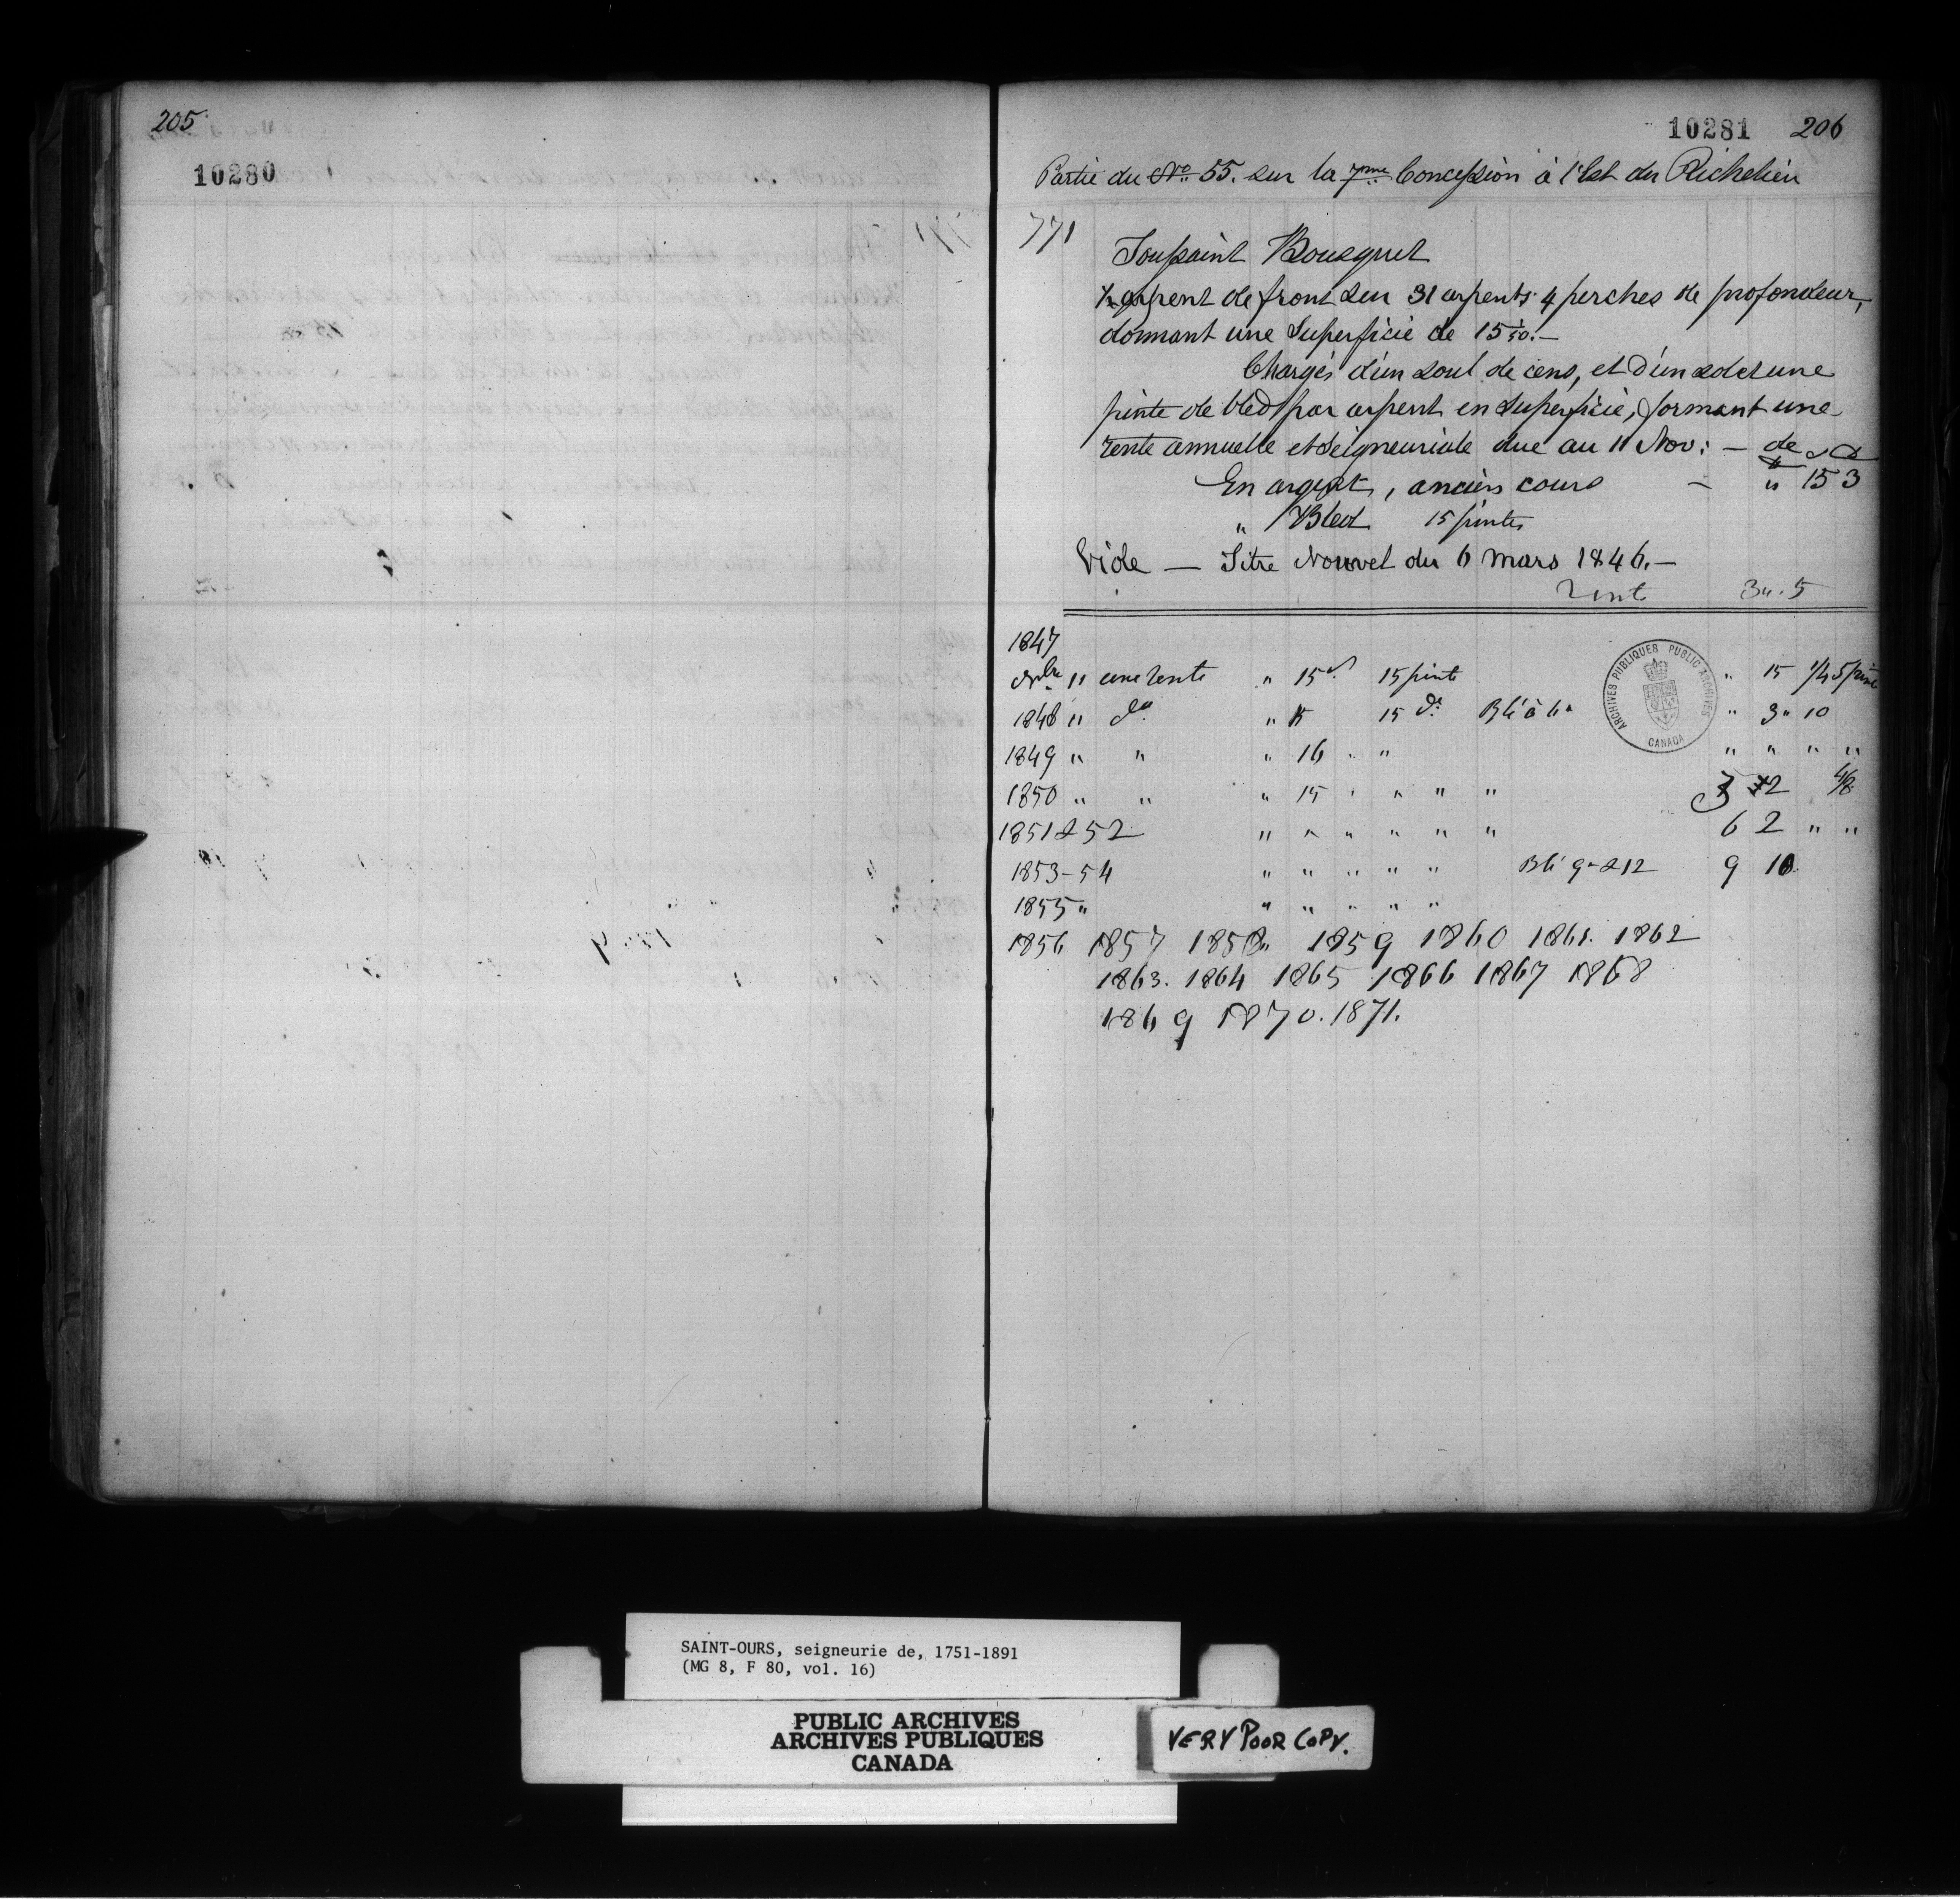 205
10280
10281 206
Partie du No. 55. sur la 7me Concession à l'Est du Richelieu
771
Toussaint Bousquet
½ arpent de front sur 31 arpents 4 perches de profondeur,
donnant une Superficie de 15 50.—
Chargés d'un soul de cens, et d'un sol et une
pinte de bled par arpent en Superficie, formant une
rente annuelle et Seigneuriale due au 11 Nov: — de
En argent, anciens cours — " 15 3
" Bled 15 pintes
Vide — Titre Nouvel du 6 Mars 1846.—
Rente 3 " 5
1847
Nbre " une rente " 15 s 15 pinte " 15 1/4 5 pinte
1848 " do " 15 15 do Blé à 6 " " 3 " 10
1849 " " " 16 " " " " " "
1850 " " " 15 " " " " 3 12 4/8
1851 & 52 " " " " " " 6 2 " "
1853-54 " " " " " Blé 9 - & 12 9 10
1855 " " " " " "
1856 1857 1858 " 1859 1860 1861. 1862
1863. 1864 1865 1866 1867 1868
1869 1870. 1871.
ARCHIVES PUBLIQUES PUBLIC ARCHIVES
CANADA
SAINT-OURS, seigneurie de, 1751-1891
(MG 8, F 80, vol. 16)
PUBLIC ARCHIVES
ARCHIVES PUBLIQUES
CANADA
VERY POOR COPY.